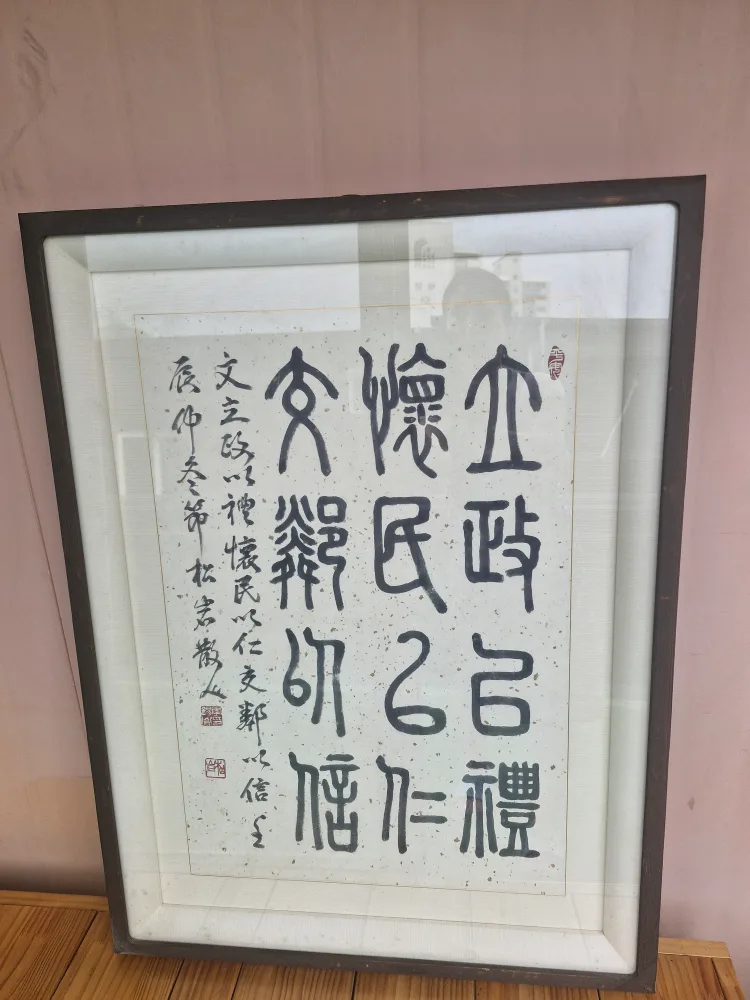 立政以禮
懷民以仁
交鄰以信
文立政以禮懷民以仁交鄰以信壬
辰仲冬節松岩散人